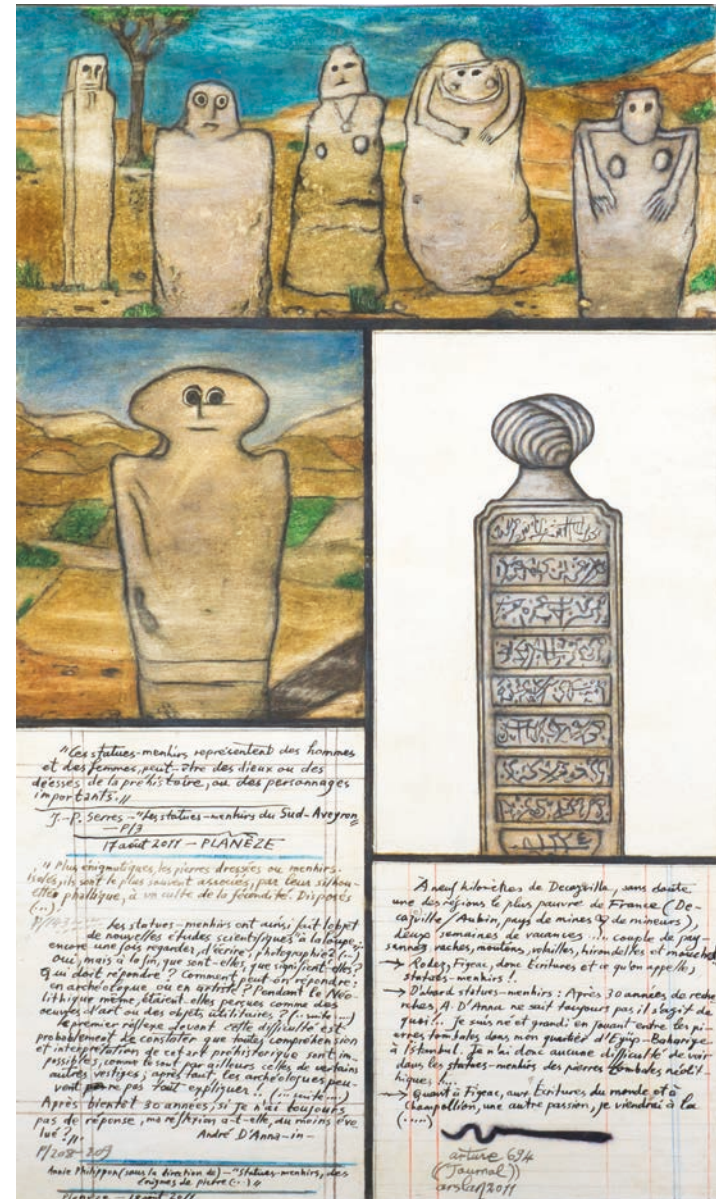 "Ces statues-menhirs représentent des hommes
et des femmes, peut-être des dieux ou des
déesses de la préhistoire, ou des personnages
importants."
J.-P. Serres – "Les statues-menhirs du Sud-Aveyron"
— P/3
17 août 2011 – PLANÈZE
"Plus énigmatiques, les pierres dressées ou menhirs
isolés, ils sont le plus souvent associés, par leur silhou-
ette phallique, à un culte de la fécondité. Disposés
(...)
Les statues-menhirs ont aussi fait l'objet
de nouvelles études scientifiques à la loupe,
encore une fois regarder, décrire, photographier (...)
Oui, mais à la fin, que sont-elles, que signifient-elles?
Qui doit répondre? Comment peut-on répondre:
en archéologue ou en artiste? Pendant le Néo-
lithique même, étaient-elles perçues comme des
oeuvres d'art ou des objets utilitaires? (..suite...)
Le premier réflexe devant cette difficulté est
probablement de constater que toutes compréhension
et interprétation de cet art préhistorique sont im-
possibles, comme le sont par ailleurs celles de certains
autres vestiges; après tout, les archéologues peu-
vent ne pas tout expliquer.. (...suite....)
Après bientôt 30 années, si je n'ai toujours
pas de réponse, ma réflexion a-t-elle, du moins évo-
lué?"
André D'Anna – in –
P/208-209
Annie Philippon (sous la direction de) – "Statues-menhirs, des
énigmes de pierre (...)
Planèze – 2011
À neuf kilomètres de Decazeville, sans doute
une des régions le plus pauvre de France (De-
cazeville/Aubin, pays de mines & de mineurs),
deux semaines de vacances .... couple de pay-
sannes, vaches, moutons, volailles, hirondelles et mouches
→ Rodez, Figeac, donc Écritures et ce qu'on appelle,
statues-menhirs!.
→ D'abord statues-menhirs: Après 30 années de reche
rches, A. D'Anna ne sait toujours pas il s'agit de
quoi!.. Je suis né et grandi en jouant entre les pi-
erres tombales dans mon quartier d'Eyüp-Bahariye
à Istanbul. Je n'ai donc aucune difficulté de voir
dans les statues-menhirs des pierres tombales néolit-
hiques!...
→ Quant à Figeac, aux Écritures du monde et à
Champollion, une autre passion, je viendrai à la
(.....)
arture 694
("Journal")
arslan/2011